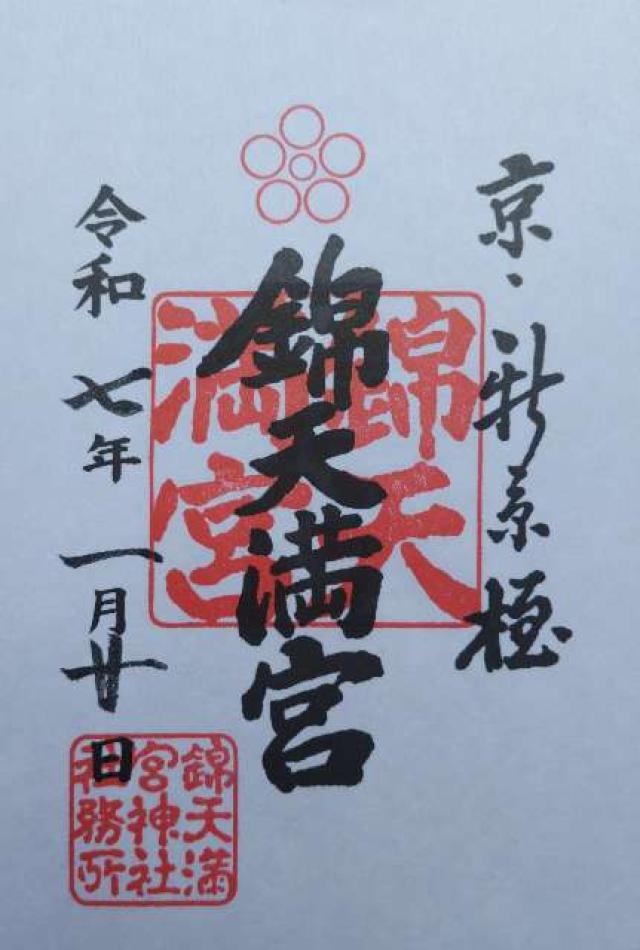 京・新京極
錦天満宮
錦天
満宮
令和七年一月廿日
錦天満
宮神社
社務所